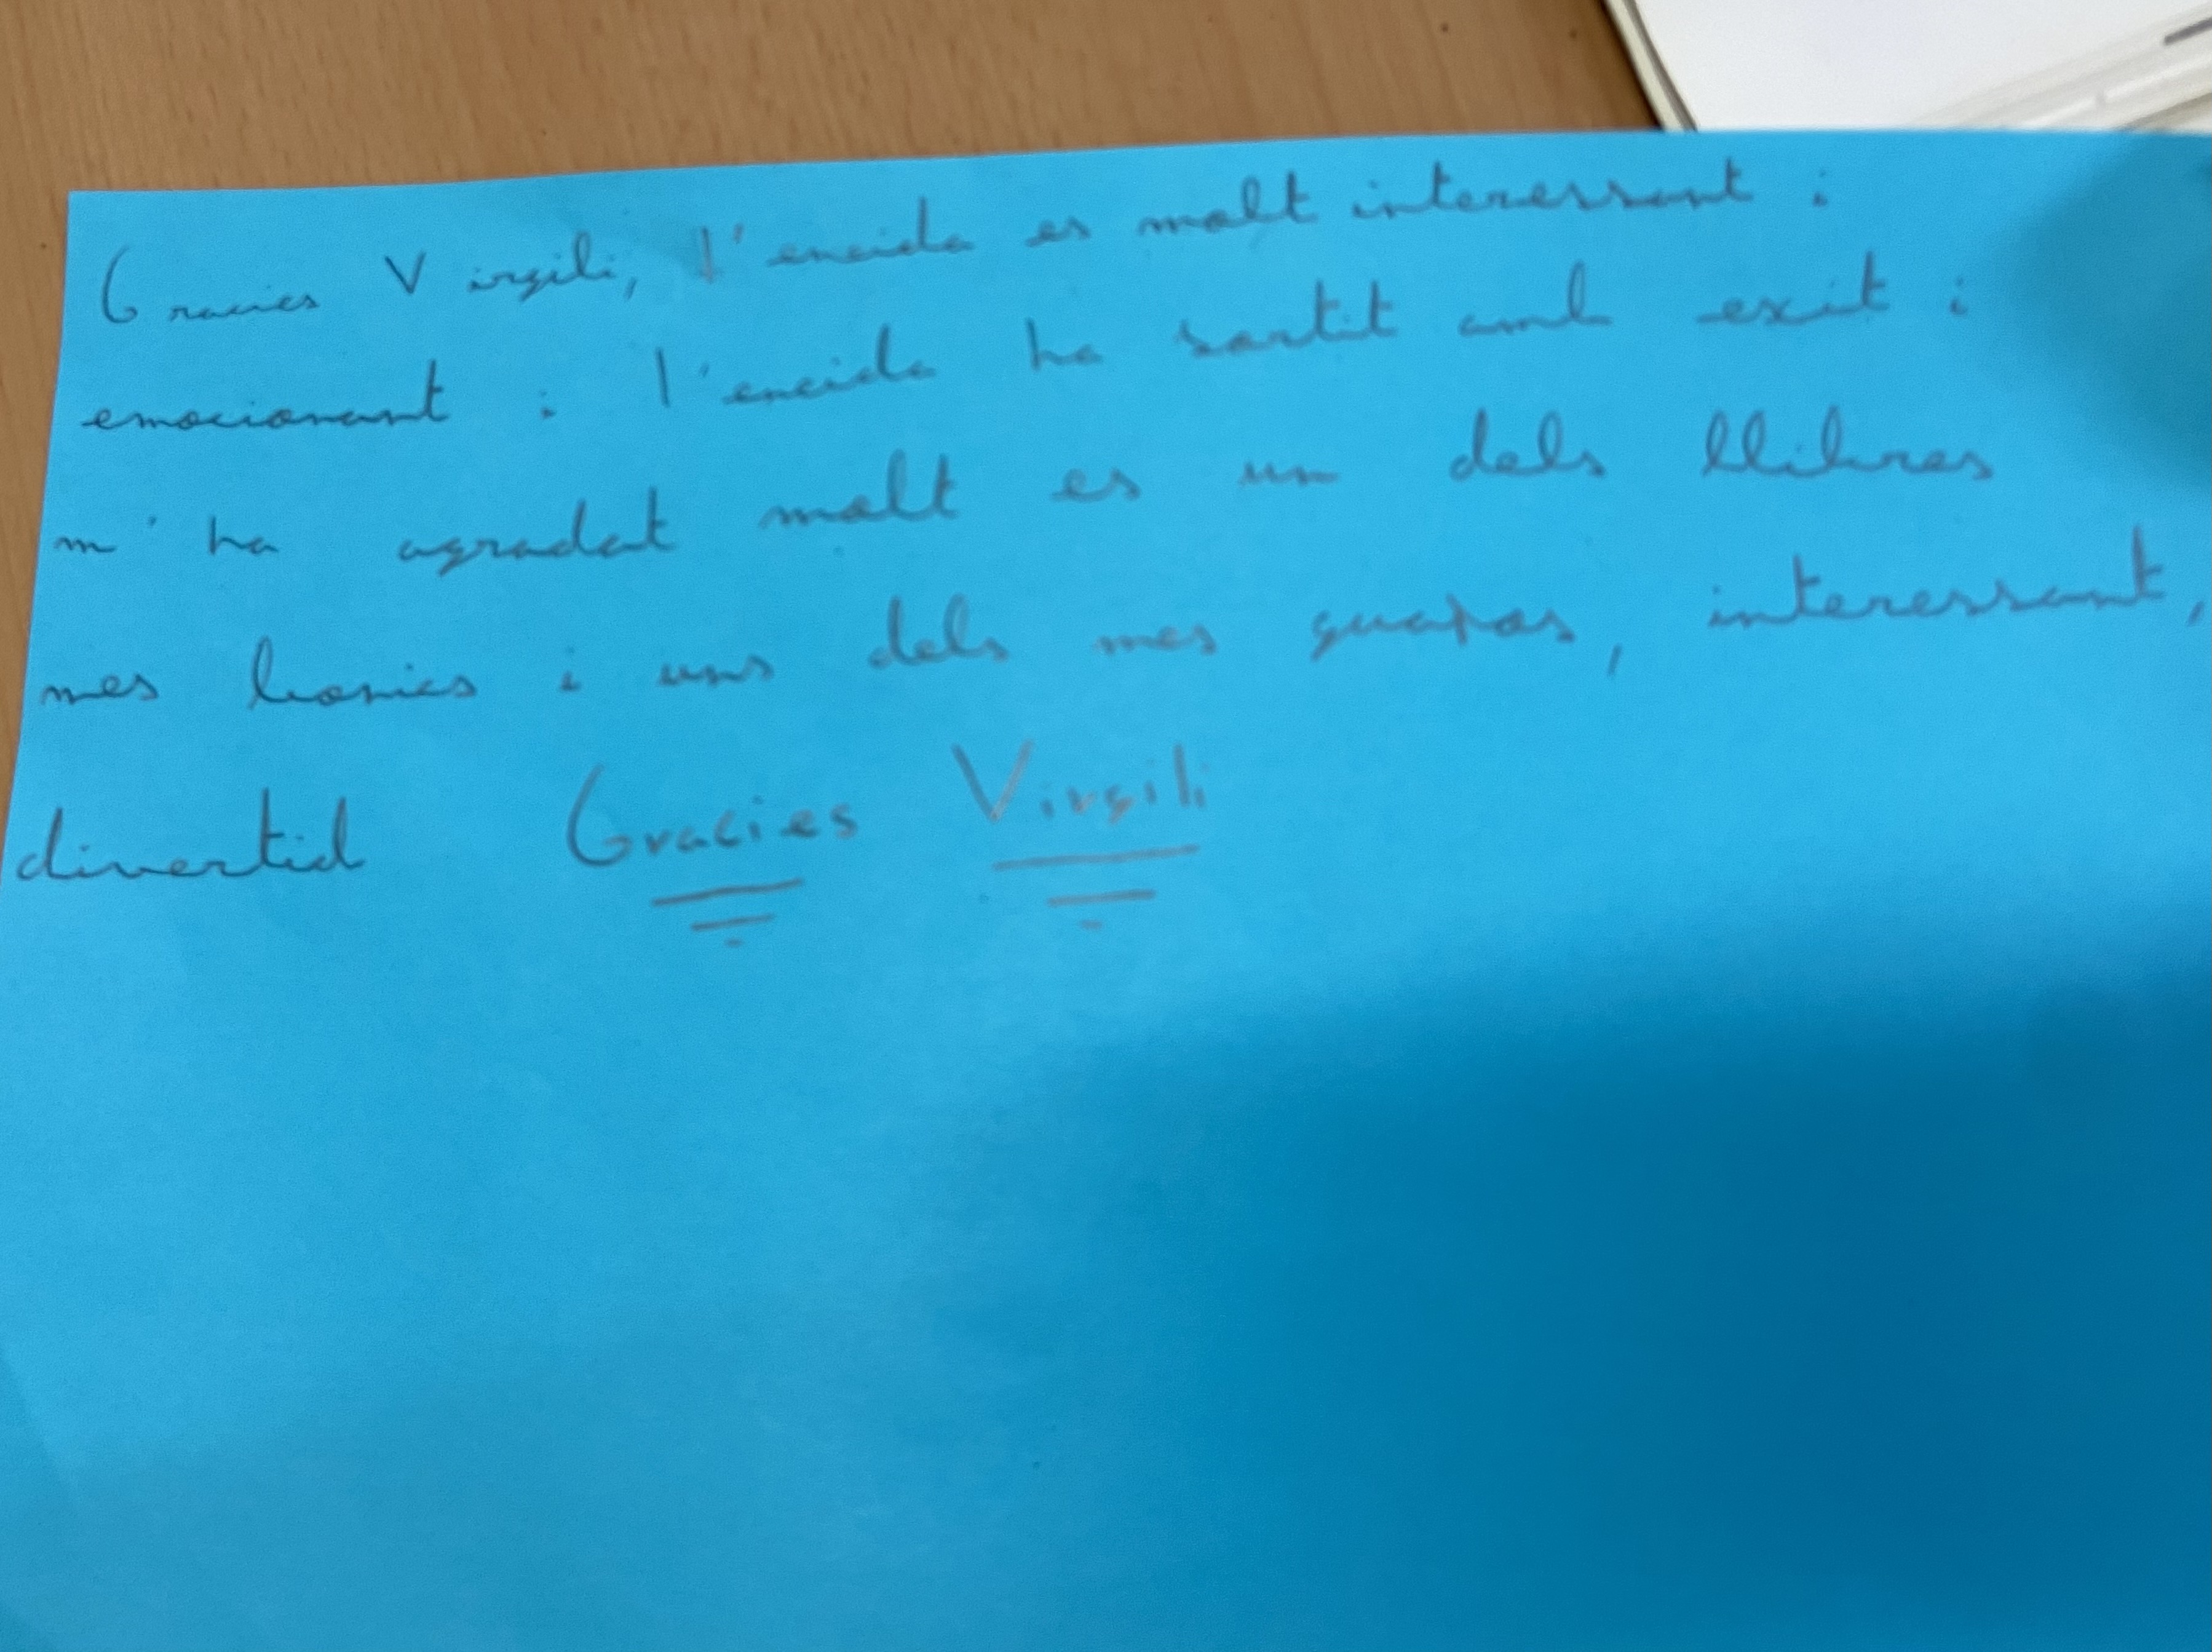 Gracies Virgili, l'eneida es molt interessant i
emocionant i l'eneida ha sortit amb exit i
m'ha agradat molt es un dels llibres
mes bonics i uns dels mes guapos, interessant,
divertid Gracies Virgili